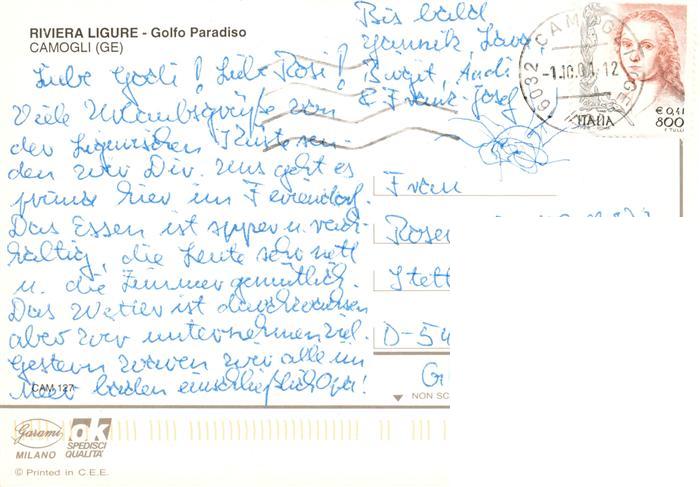 RIVIERA LIGURE - Golfo Paradiso
CAMOGLI (GE)
Liebe Godi! Liebe Rosi!
Viele Urlaubsgrüße von
der Ligurischen Küste sen-
den wir Dir. Uns geht es
prima hier im Feriendorf.
Das Essen ist üppig u. reich-
haltig, die Leute sehr nett
u. die Zimmer gemütlich.
Das Wetter ist durchwachsen
aber wir unternehmen viel.
Gestern waren wir alle im
Meer baden einschließlich Opa!
Bis bald
Yannik, Lara,
Birgit, Andi
& Franz-Josef
CAMOGLI (GE)
6032
-1.10.01.12
ITALIA
€ 0,41
800
Frau
Rosem
Stett
D-54
G
CAM 127
NON SC
Garami
MILANO
ok
SPEDISCI
QUALITA'
© Printed in C.E.E.